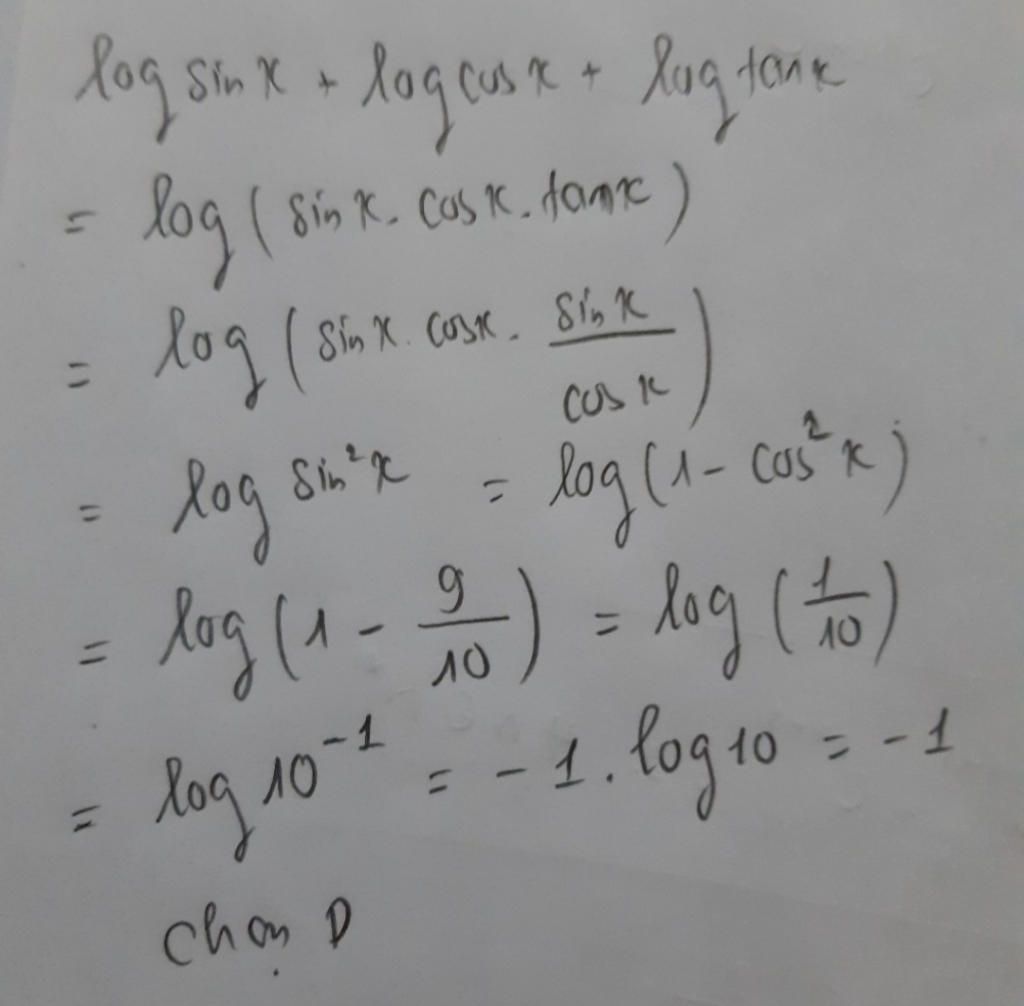 log sin x + log cos x + log tan x
= log ( sin x . cos x . tan x )
= log ( sin x . cos x . sin x / cos x )
= log sin² x = log ( 1 - cos² x )
= log ( 1 - 9/10 ) = log ( 1/10 )
= log 10⁻¹ = - 1 . log 10 = - 1
Chọn D